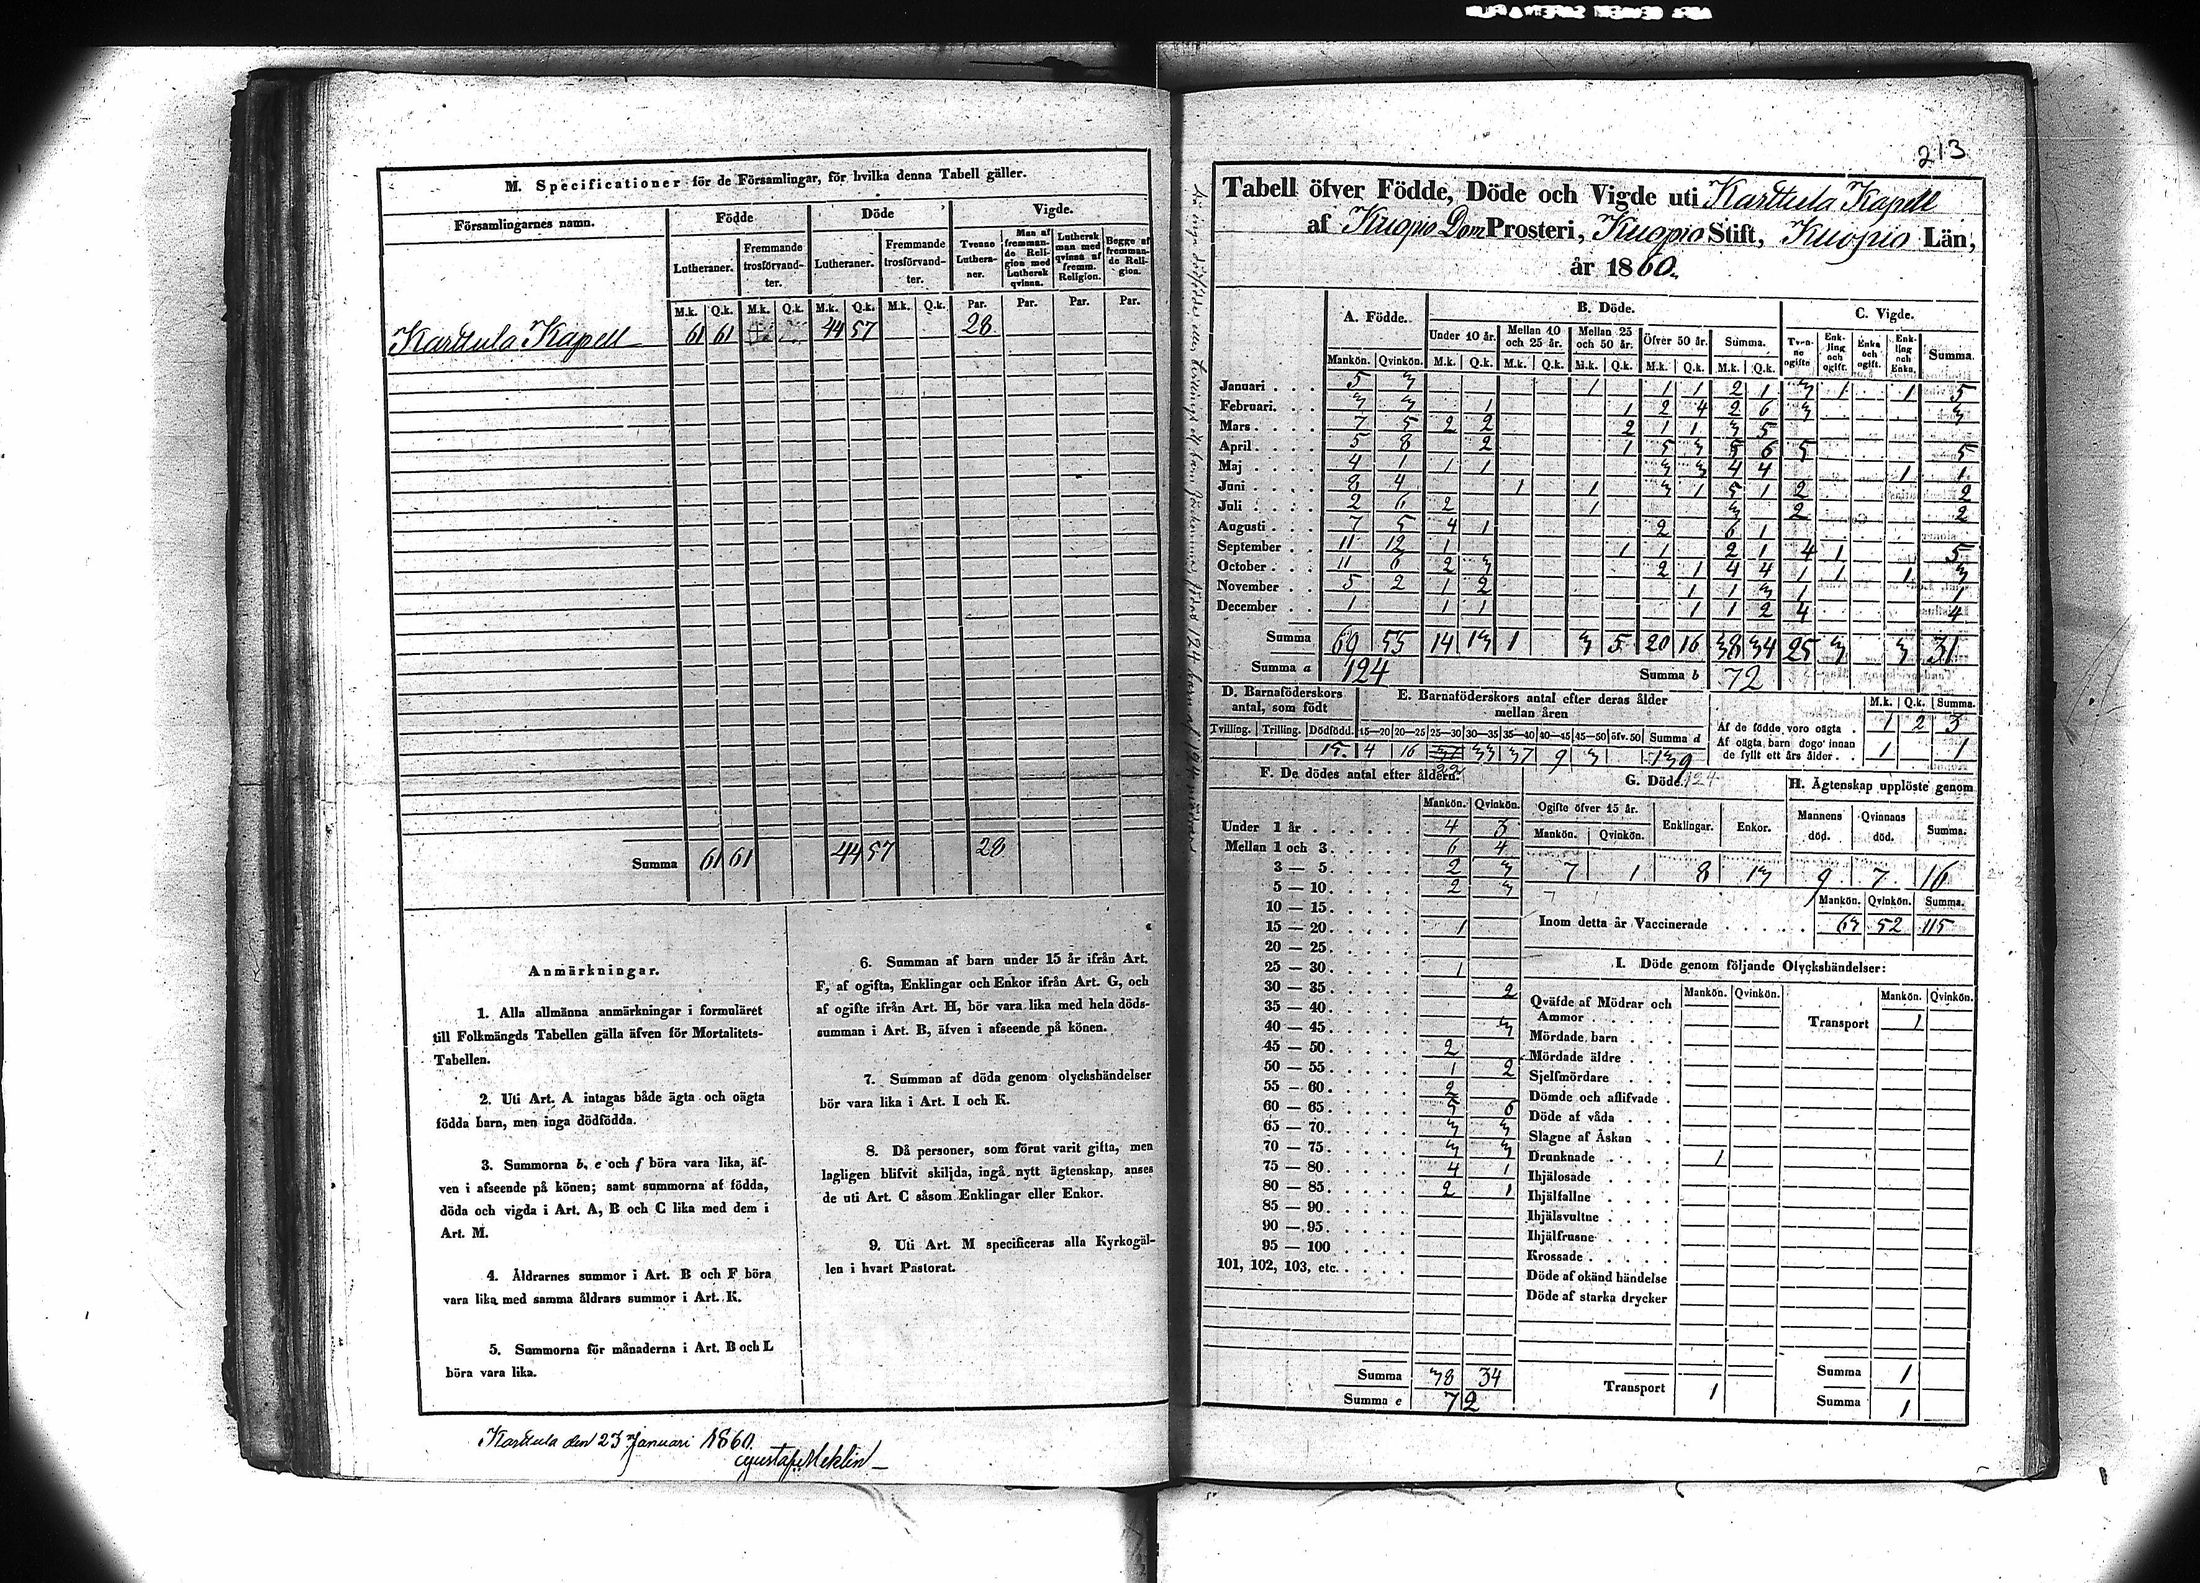 M. Specificationer för de Församlingar, för hvilka denna Tabell gäller.
Församlingarnes namn.
Födde
Döde
Vigde.
Lutheraner.
Fremmande trosförvandter.
Lutheraner.
Fremmande trosförvandter.
Tvenne Lutheraner.
Man af fremmande Religion med Luthersk qvinna.
Luthersk man med qvinna af fremm. Religion.
Begge af fremmande Religion.
M.k. Q.k. M.k. Q.k. M.k. Q.k. M.k. Q.k. Par. Par. Par. Par.
Karttula Kapell 61 61 44 57 28
Summa 61 61 44 57 28
Anmärkningar.
1. Alla allmänna anmärkningar i formuläret
till Folkmängds Tabellen gälla äfven för Mortalitets-
Tabellen.
2. Uti Art. A intagas både ägta och oägta
födda barn, men inga dödfödda.
3. Summorna b, e och f böra vara lika, äf-
ven i afseende på könen; samt summorna af födda,
döda och vigda i Art. A, B och C lika med dem i
Art. M.
4. Åldrarnes summor i Art. B och F böra
vara lika med samma åldrars summor i Art. K.
5. Summorna för månaderna i Art. B och L
böra vara lika.
6. Summan af barn under 15 år ifrån Art.
F, af ogifta, Enklingar och Enkor ifrån Art. G, och
af ogifte ifrån Art. H, bör vara lika med hela döds-
summan i Art. B, äfven i afseende på könen.
7. Summan af döda genom olyckshändelser
bör vara lika i Art. I och K.
8. Då personer, som förut varit gifta, men
lagligen blifvit skiljda, ingå nytt ägtenskap, anses
de uti Art. C såsom Enklingar eller Enkor.
9. Uti Art. M specificeras alla Kyrkogäl-
len i hvart Pastorat.
Karttula den 23 Januari 1860.
Gustaf Meklin
213
Tabell öfver Födde, Döde och Vigde uti Karttula Kapell
af Kuopio Dom Prosteri, Kuopio Stift, Kuopio Län,
år 1860.
A. Födde.
B. Döde.
C. Vigde.
Under 10 år. Mellan 10 och 25 år. Mellan 25 och 50 år. Öfver 50 år. Summa.
Tvenne ogifte Enkling och ogift. Enka och ogift. Enkling och Enka. Summa.
Mankön. Qvinkön. M.k. Q.k. M.k. Q.k. M.k. Q.k. M.k. Q.k. M.k. Q.k.
Januari 5 3 1 1 1 2 1 3 1 1 5
Februari 3 3 1 1 2 4 2 6 3 3
Mars 7 5 2 2 2 1 1 3 5
April 5 8 2 1 5 3 5 6 5 5
Maj 4 1 1 1 3 3 4 4 1 1
Juni 8 4 1 1 3 1 5 1 2 2
Juli 2 6 2 1 3 2 2
Augusti 7 5 4 1 2 6 1
September 11 12 1 1 1 2 1 4 1 5
October 11 6 2 3 2 1 4 4 1 1 1 3
November 5 2 1 2 1 1 3 1 1
December 1 1 1 1 1 2 4 4
Summa 69 55 14 13 1 3 5 20 16 38 34 25 3 3 31
Summa a 124 Summa b 72
D. Barnaföderskors antal, som födt
E. Barnaföderskors antal efter deras ålder mellan åren
Tvilling. Trilling. Dödfödd. 15—20 20—25 25—30 30—35 35—40 40—45 45—50 öfv. 50 Summa d
15 4 16 22 33 37 9 3 139
124
M.k. Q.k. Summa.
Af de födde voro oägta 1 2 3
Af oägta barn dogo innan de fyllt ett års ålder 1 1
F. De dödes antal efter åldern.
Mankön. Qvinkön.
Under 1 år 4 3
Mellan 1 och 3 6 4
3 — 5 2 3
5 — 10 2 3
10 — 15
15 — 20 1
20 — 25
25 — 30 1
30 — 35 2
35 — 40
40 — 45 3
45 — 50 2
50 — 55 1 2
55 — 60 2
60 — 65 5 6
65 — 70 3 3
70 — 75 3 3
75 — 80 4 1
80 — 85 2 1
85 — 90
90 — 95
95 — 100
101, 102, 103, etc.
Summa 38 34
Summa e 72
G. Döde.
Ogifte öfver 15 år. Enklingar. Enkor.
Mankön. Qvinkön.
7 1 8 13
H. Ägtenskap upplöste genom
Mannens död. Qvinnans död. Summa.
9 7 16
Mankön. Qvinkön. Summa.
Inom detta år Vaccinerade 63 52 115
I. Döde genom följande Olyckshändelser:
Mankön. Qvinkön. Mankön. Qvinkön.
Qväfde af Mödrar och Ammor
Transport 1
Mördade barn
Mördade äldre
Sjelfmördare
Dömde och aflifvade
Döde af våda
Slagne af Åskan
Drunknade 1
Ihjälosade
Ihjälfallne
Ihjälsvultne
Ihjälfrusne
Krossade
Döde af okänd händelse
Döde af starka drycker
Transport 1
Summa 1
Summa 1